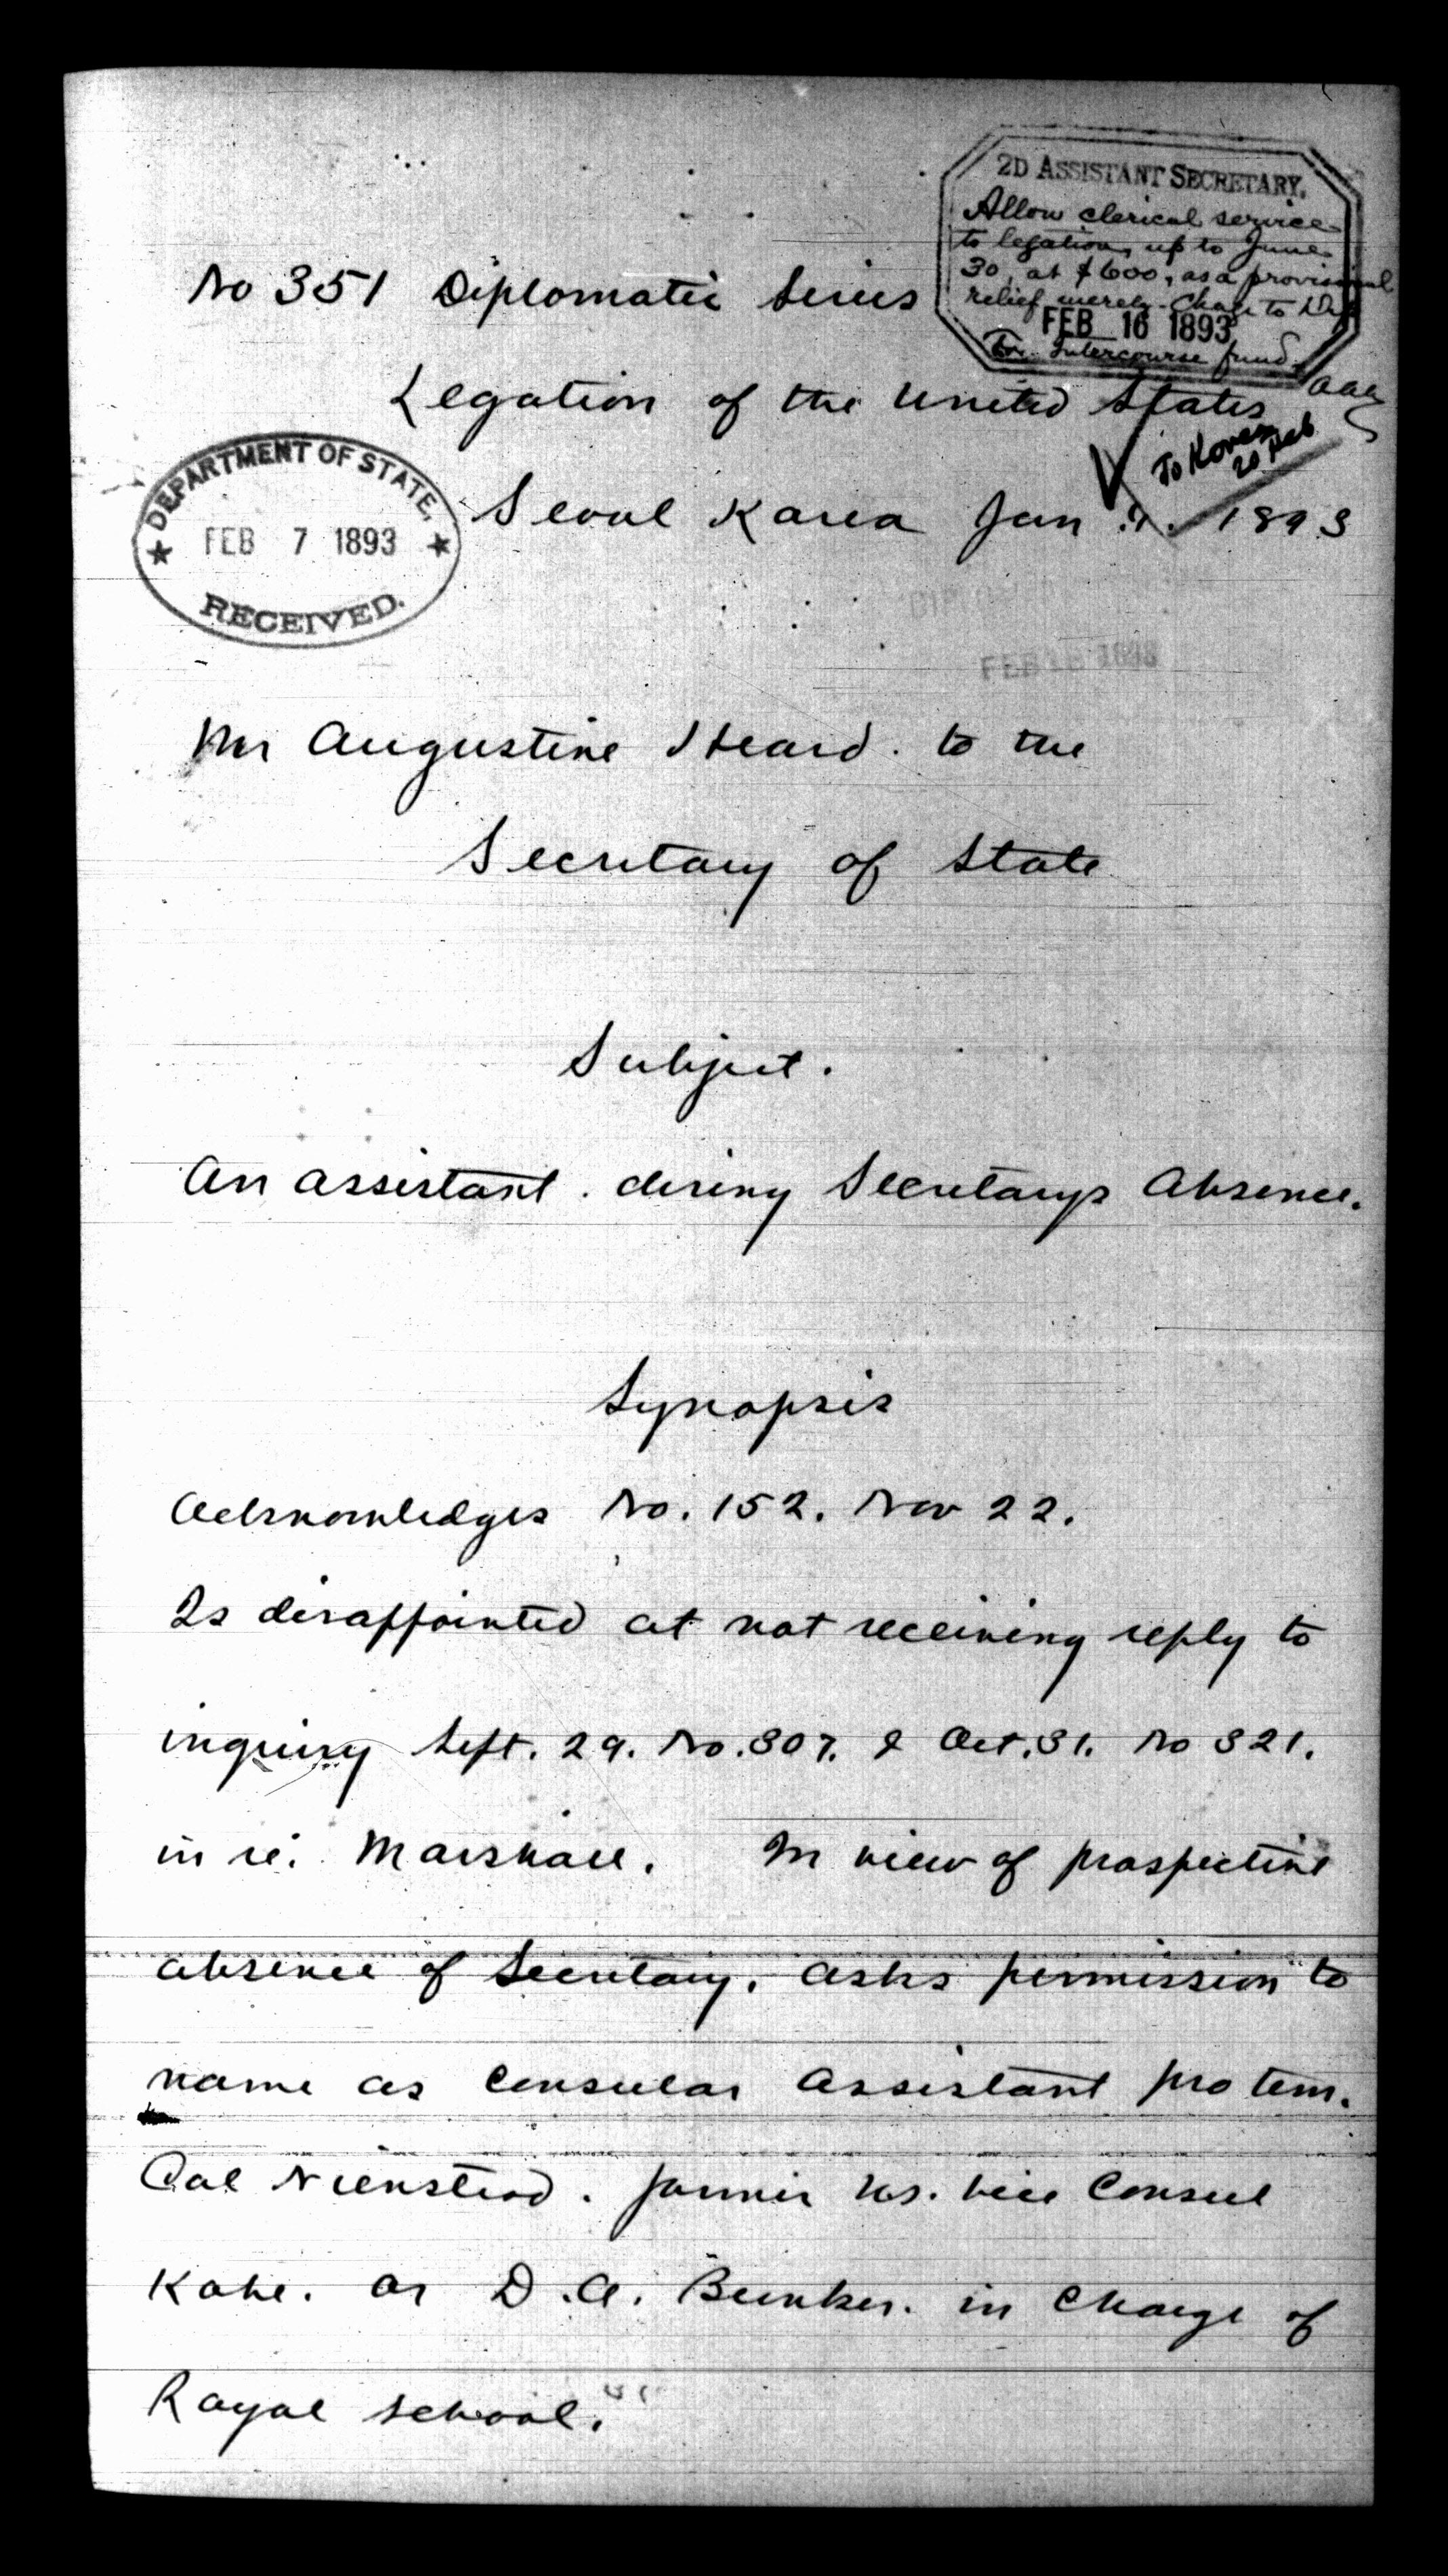 2D ASSISTANT SECRETARY.
Allow clerical service
to legation, up to June
30, at $600, as a provisional
relief merely. Charge to
FEB 16 1893
Intercourse fund.
aaa
No 351 Diplomatic Series
Legation of the United States
To Korea
20 Feb
DEPARTMENT OF STATE,
FEB 7 1893
RECEIVED.
Seoul Korea Jan 1893
FEB 1893
Mr Augustine Heard. to the
Secretary of State
Subject.
An assistant. during Secretarys Absence.
Synopsis
Acknowledges No. 152. Nov 22.
Is disappointed at not receiving reply to
inquiry Sept. 29. No. 307. & Oct. 31. No 321.
in re: Marshall. In view of prospective
absence of Secretary. asks permission to
name as Consular Assistant pro tem.
Col Nienstead. former U.S. Vice Consul
Kobe. or D. A. Bunker. in Charge of
Royal School.